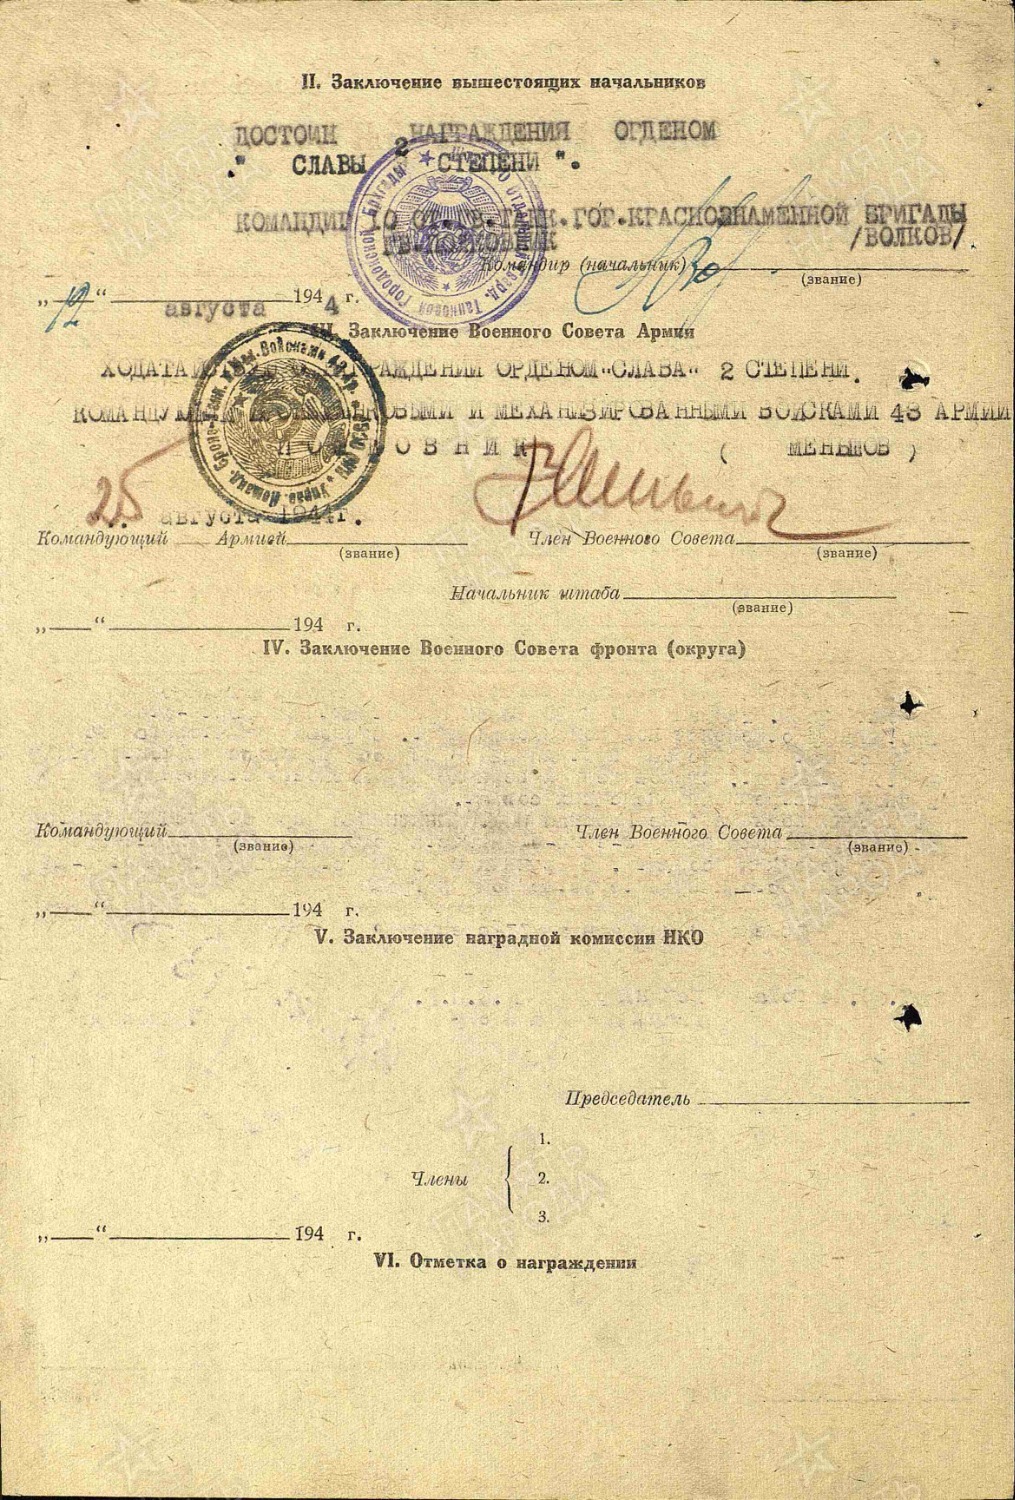 II. Заключение вышестоящих начальников
ДОСТОИН НАГРАЖДЕНИЯ ОРДЕНОМ
" СЛАВЫ 2 СТЕПЕНИ ".
КОМАНДИР ГОР.КРАСНОЗНАМЕННОЙ БРИГАДЫ
/ВОЛКОВ/
Командир (начальник)
(звание)
„12“ августа 1944 г.
III. Заключение Военного Совета Армии
ОРДЕНОМ "СЛАВА" 2 СТЕПЕНИ.
И МЕХАНИЗИРОВАННЫМИ ВОЙСКАМИ 48 АРМИИ
( МЕНЬШОВ )
25 августа 1944г.
Командующий Армией Член Военного Совета
(звание) (звание)
Начальник штаба
(звание)
„ “ 194 г.
IV. Заключение Военного Совета фронта (округа)
Командующий Член Военного Совета
(звание) (звание)
„ “ 194 г.
V. Заключение наградной комиссии НКО
Председатель
1.
Члены 2.
3.
„ “ 194 г.
VI. Отметка о награждении
ПАМЯТЬ
НАРОДА